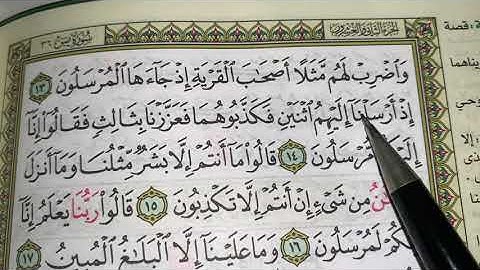 سُورَةُ يسٓ ٣٦
الجزء الثاني والعشرون
وَٱضْرِبْ لَهُم مَّثَلًا أَصْحَٰبَ ٱلْقَرْيَةِ إِذْ جَآءَهَا ٱلْمُرْسَلُونَ ١٣
إِذْ أَرْسَلْنَآ إِلَيْهِمُ ٱثْنَيْنِ فَكَذَّبُوهُمَا فَعَزَّزْنَا بِثَالِثٍ فَقَالُوٓا۟ إِنَّآ
إِلَيْكُم مُّرْسَلُونَ ١٤ قَالُوا۟ مَآ أَنتُمْ إِلَّا بَشَرٌ مِّثْلُنَا وَمَآ أَنزَلَ
مِن شَىْءٍ إِنْ أَنتُمْ إِلَّا تَكْذِبُونَ ١٥ قَالُوا۟ رَبُّنَا يَعْلَمُ إِنَّآ
لَمُرْسَلُونَ ١٦ وَمَا عَلَيْنَآ إِلَّا ٱلْبَلَٰغُ ٱلْمُبِينُ ١٧
قصة